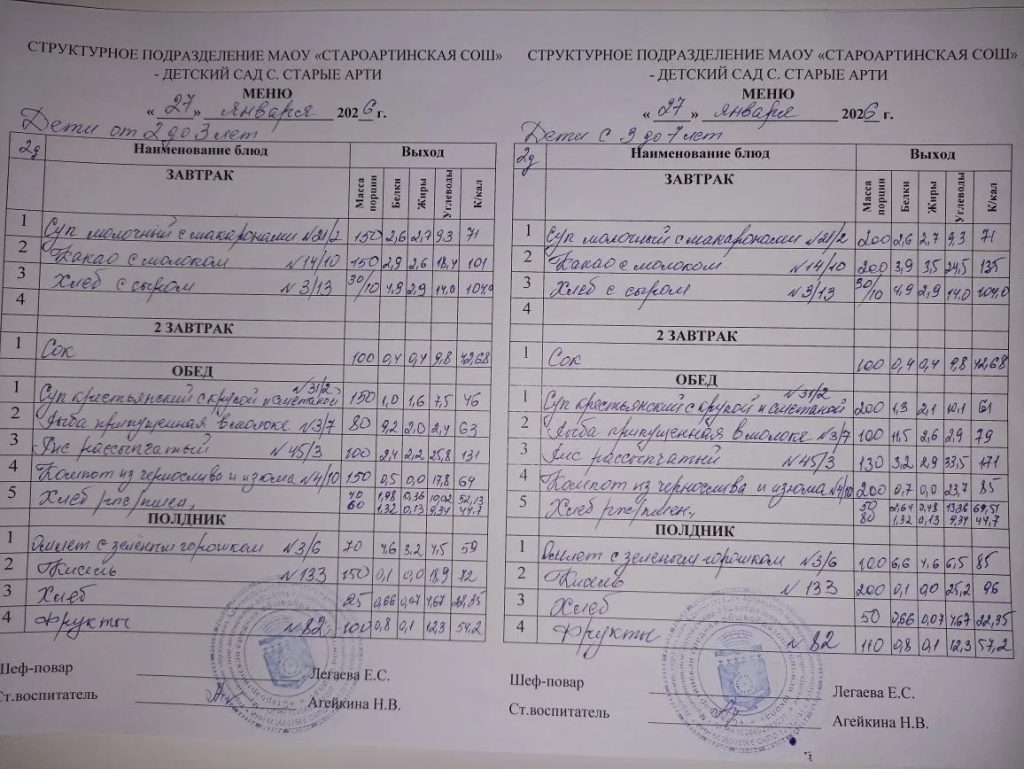 СТРУКТУРНОЕ ПОДРАЗДЕЛЕНИЕ МАОУ «СТАРОАРТИНСКАЯ СОШ»
- ДЕТСКИЙ САД С. СТАРЫЕ АРТИ
МЕНЮ
« 27 » января 2026 г.
Дети от 2 до 3 лет
2д Наименование блюд Выход
ЗАВТРАК Масса порции Белки Жиры Углеводы К/кал
1 Суп молочный с макаронами №21/2 150 2,6 2,7 9,3 71
2 Какао с молоком №14/10 150 2,9 2,6 18,4 101
3 Хлеб с сыром №3/13 30/10 4,9 2,9 14,0 104,0
4
2 ЗАВТРАК
1 Сок 100 0,4 0,4 9,8 42,68
ОБЕД
1 Суп крестьянский с крупой и сметаной №31/2 150 1,0 1,6 7,5 46
2 Рыба припущенная в молоке №3/7 80 9,2 2,0 2,4 63
3 Рис рассыпчатый №45/3 100 2,4 2,2 25,8 131
4 Компот из чернослива и изюма №4/10 150 0,5 0,0 17,8 64
5 Хлеб рж/пшен, 40 1,98 0,36 10,02 52,13
60 1,32 0,13 9,34 44,7
ПОЛДНИК
1 Омлет с зеленым горошком №3/6 70 4,6 3,2 4,5 59
2 Кисель №133 150 0,1 0,0 18,9 72
3 Хлеб 25 0,66 0,07 4,67 22,35
4 Фрукты №82 100 0,8 0,1 12,3 54,2
Шеф-повар Легаева Е.С.
Ст.воспитатель Агейкина Н.В.
СТРУКТУРНОЕ ПОДРАЗДЕЛЕНИЕ МАОУ «СТАРОАРТИНСКАЯ СОШ»
- ДЕТСКИЙ САД С. СТАРЫЕ АРТИ
МЕНЮ
« 27 » января 2026 г.
Дети с 3 до 7 лет
2д Наименование блюд Выход
ЗАВТРАК Масса порции Белки Жиры Углеводы К/кал
1 Суп молочный с макаронами №21/2 200 2,6 2,7 9,3 71
2 Какао с молоком №14/10 200 3,9 3,5 24,5 135
3 Хлеб с сыром №3/13 30/10 4,9 2,9 14,0 104,0
4
2 ЗАВТРАК
1 Сок 100 0,4 0,4 9,8 42,68
ОБЕД
1 Суп крестьянский с крупой и сметаной №31/2 200 1,3 2,1 10,1 61
2 Рыба припущенная в молоке №3/7 100 11,5 2,6 2,9 79
3 Рис рассыпчатый №45/3 130 3,2 2,9 33,5 171
4 Компот из чернослива и изюма №4/10 200 0,7 0,0 23,7 85
5 Хлеб рж/пшен, 50 2,64 0,48 13,36 69,51
80 1,32 0,13 9,34 44,7
ПОЛДНИК
1 Омлет с зеленым горошком №3/6 100 6,6 4,6 6,5 85
2 Кисель №133 200 0,1 0,0 25,2 96
3 Хлеб 50 0,66 0,07 4,67 22,35
4 Фрукты №82 110 0,8 0,1 12,3 57,2
Шеф-повар Легаева Е.С.
Ст.воспитатель Агейкина Н.В.